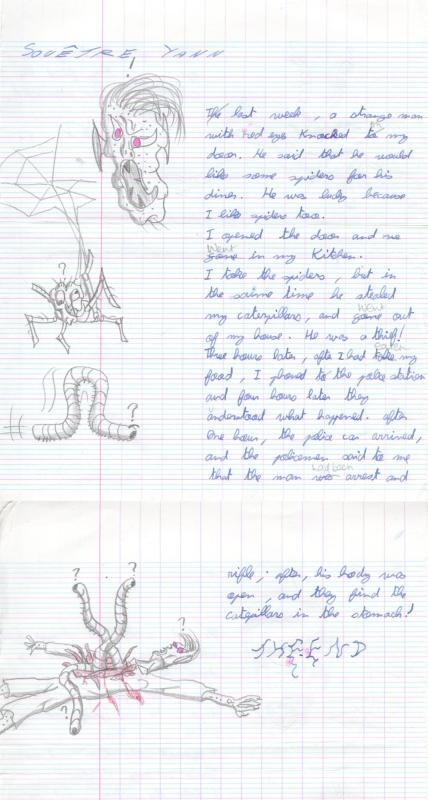 SOUÊTRE YANN
!
The last week, a strange man
with red eyes knocked to my
door. He said that he would
like some spiders for his
diner. He was lucky because
I like spiders too.
I opened the door and we
Went
come in my Kitchen.
?
I take the spiders, but in
the saime time he stealed
Went
my caterpillars, and game out
of my house. He was a thief!
eaten
Three hours later, afte I had take my
food, I phoned to the police station
and four hours later they
understood what happened. after
?
one hour, the police car arrived,
and the policemen said to me
that the man was arrest and
?
?
rifle; after, his body was
open, and they find the
catepillars in the stomach!
?
THE END
?